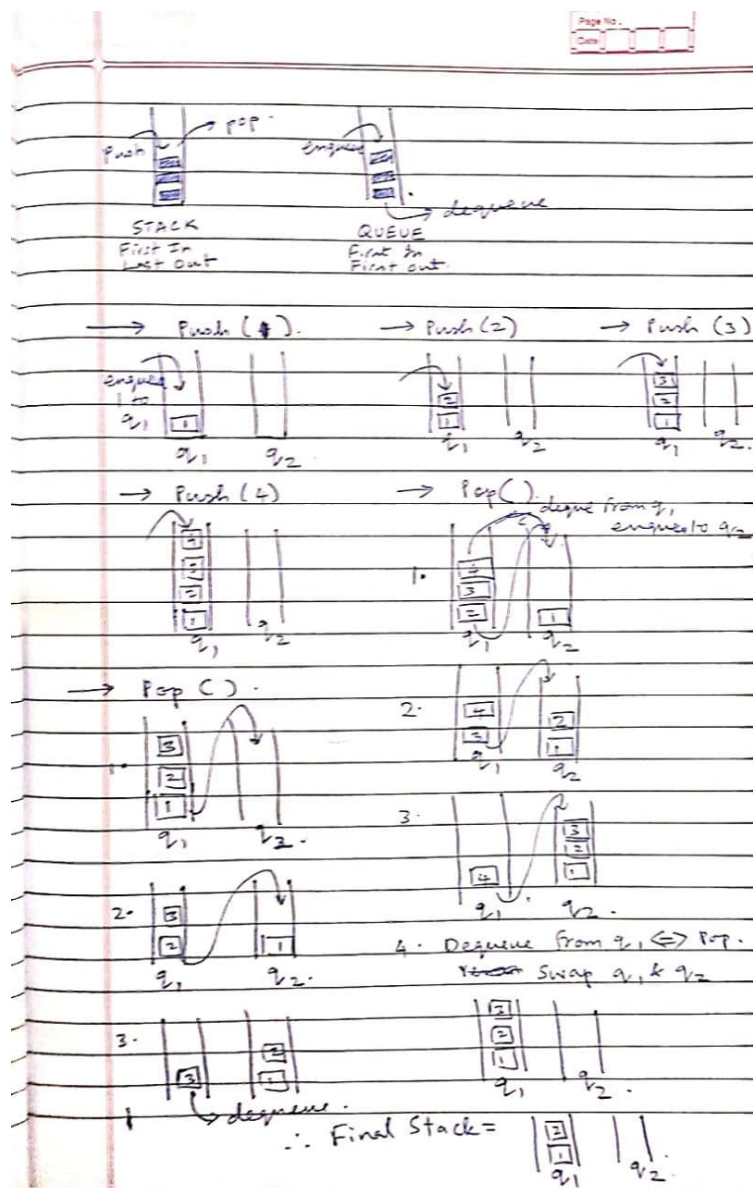 Page No.
Date
Push
pop.
enqueue
dequeue
STACK
First In
Last Out
QUEUE
First In
First out.
→ Push (1).
→ Push (2)
→ Push (3)
enqueue
1 to
q1
1
q1 q2
2
1
q1 q2
3
2
1
q1 q2.
→ Push (4)
4
3
2
1
q1 q2
→ Pop( ).
deque from q1
enqueue to q2
1.
4
3
2
1
q1 q2
2.
4
3
2
1
q1 q2
3.
4
3
2
1
q1 q2.
4. Dequeue from q1 <=> Pop.
Swap q1 & q2
3
2
1
q1 q2.
→ Pop ( ).
1.
3
2
1
q1 q2.
2.
3
2
1
q1 q2.
3.
3
2
1
dequeue.
∴ Final Stack =
2
1
q1 q2.